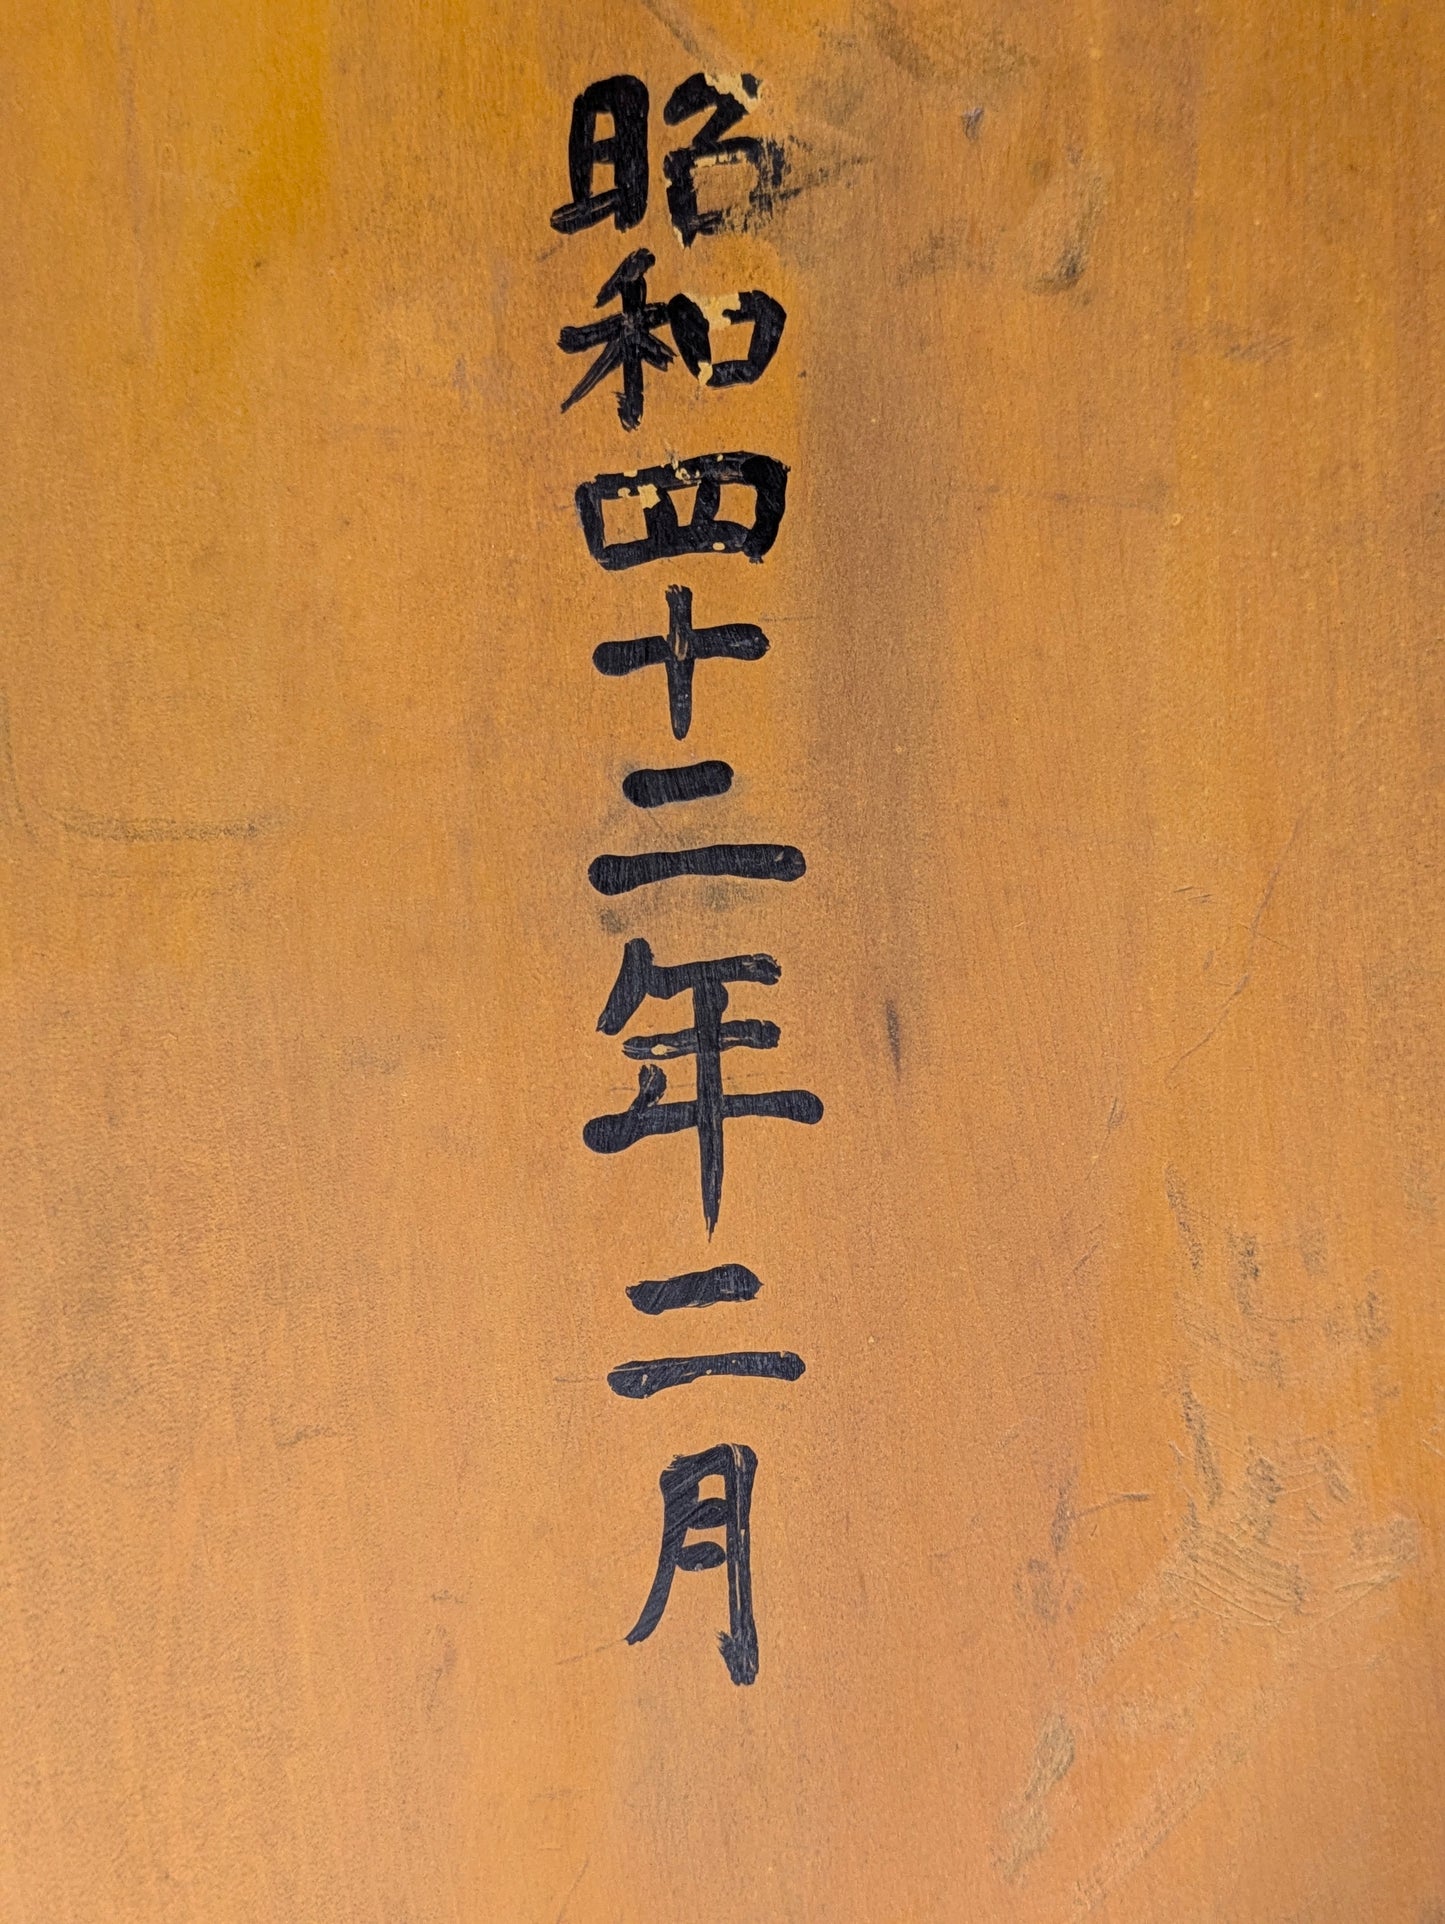 昭和四十二年二月